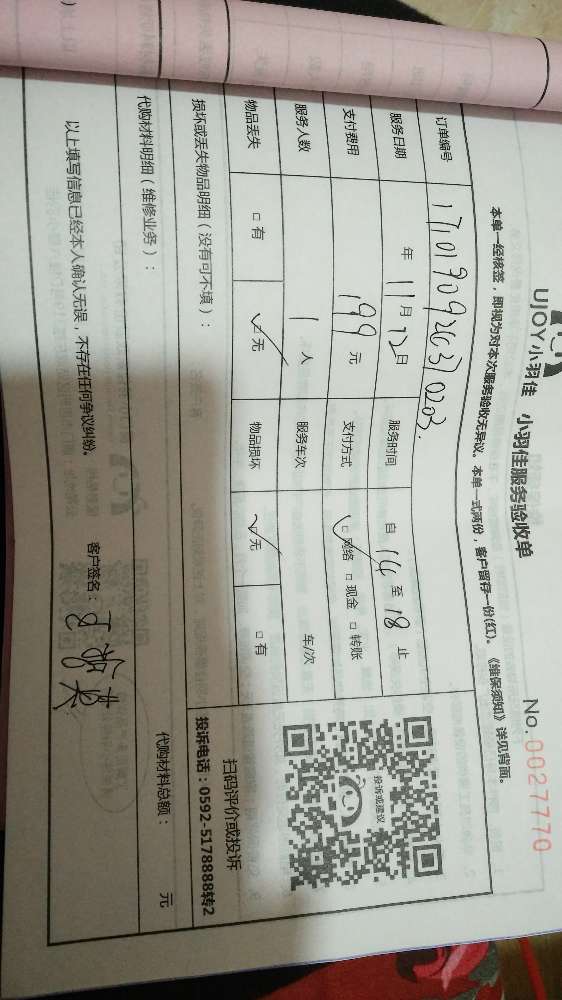 UJOY小羽佳 小羽佳服务验收单
No. 0027770
本单一经核签，即视为对本次服务验收无异议。本单一式两份，客户留存一份(红)。《维保须知》详见背面。
订单编号 1710190926370203.
服务日期 年 11 月 12 日 服务时间 自 14 至 18 止
支付费用 199 元 支付方式 ☑ 网络 □ 现金 □ 转账
服务人数 1 人 服务车次 车/次
物品丢失 □ 有 ☑ 无 物品损坏 ☑ 无 □ 有
投诉或建议
扫码评价或投诉
投诉电话：0592-5178888转2
损坏或丢失物品明细（没有可不填）：
代购材料明细（维修业务）： 代购材料总额： 元
以上填写信息已经本人确认无误，不存在任何争议纠纷。 客户签名：